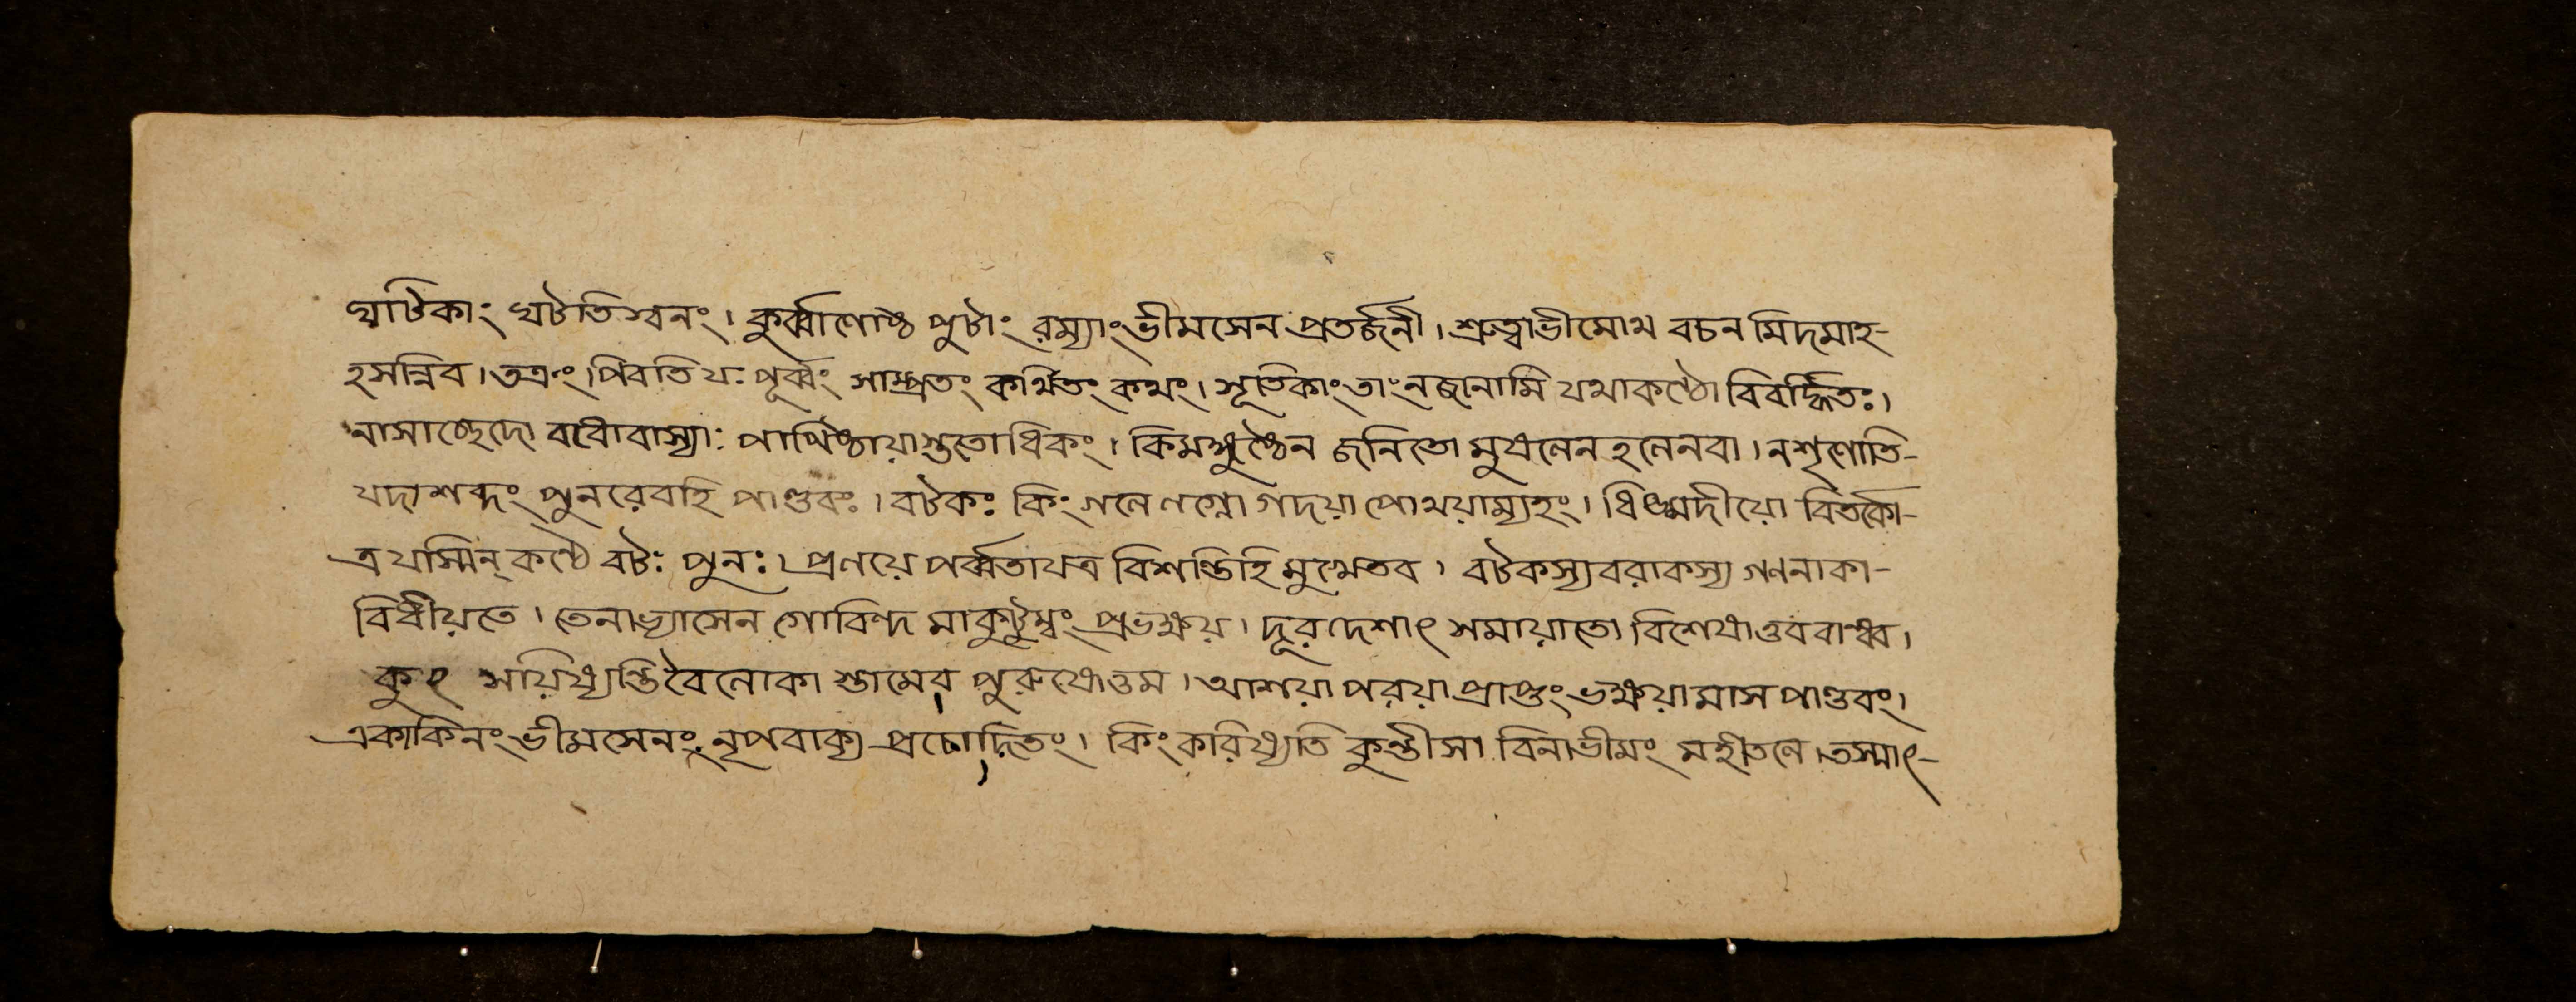 ঘাটিকাং ঘটতিস্বনং। কুর্ব্বাণোষ্ঠ পুটাং রম্যাং ভীমসেন প্রতর্জনী। শ্রুত্বাভীমোথ বচন মিদমাহ-
হসন্নিব। তক্রং পিবতি যঃ পূর্ব্বং সাম্প্রতং কথিতং কথং। সূতিকাং তাং নজানামি যথাকণ্ঠো বিবর্দ্ধিতঃ।
নাসাচ্ছেদো বধোবাস্যাঃ পাপিষ্ঠায়াশ্রুতোধিকং। কিমঙ্গুষ্ঠেন জনিতো মুষলেন হলেনবা। নশৃণোতি-
যদাশব্দং পুনরেবহি পাণ্ডবঃ। বটকঃ কিং গলে লগ্নো গদয়া পোথয়াম্যহং। ধিঙ্মদীয়ো বিতর্কো-
ত্র যস্মিন্ কণ্ঠে বটঃ পুনঃ। প্রলয়ে পর্ব্বতাযত্র বিশন্তিহি মুখেতব। বটকস্যবরাকস্য গণনাকা-
বিধীয়তে। তেনাভ্যাসেন গোবিন্দ মাকুটুম্বং প্রভক্ষয়। দূরদেশাৎ সমায়াতো বিশেষাত্তববান্ধব।
কুৎসয়িষ্যন্তিবৈলোকা স্তামেব পুরুষোত্তম। আশয়া পরয়া প্রাপ্তং ভক্ষয়ামাস পাণ্ডবং।
একাকিনং ভীমসেনং নৃপবাক্য প্রচোদিতং। কিং করিষ্যতি কুন্তীসা বিনাভীমং মহীতলে। তস্মাৎ-